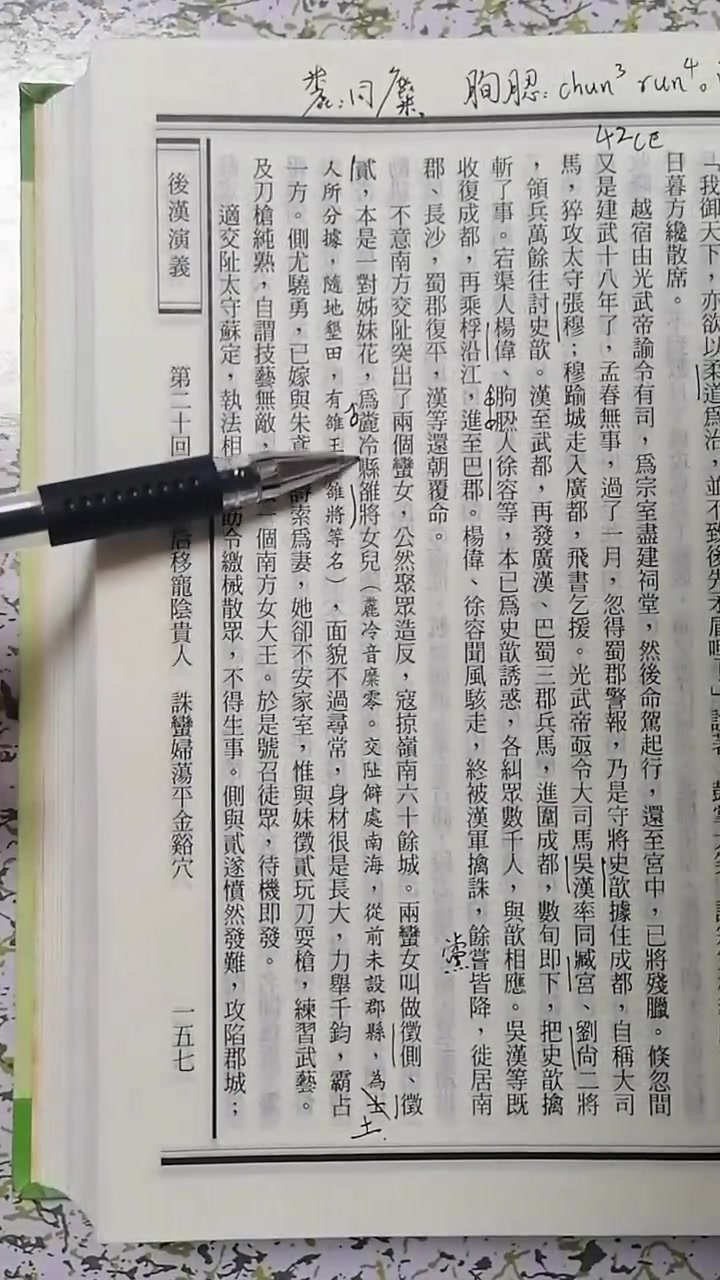 糜。
胊䏰：chun³ run⁴。
42CE
「我御天下，亦欲以柔道為治，並不致後先矛盾嗎！」
日暮方纔散席。
越宿由光武帝諭令有司，為宗室盡建祠堂，然後命駕起行，還至宮中，已將殘臘。倏忽間
又是建武十八年了，孟春無事，過了一月，忽得蜀郡警報，乃是守將史歆據住成都，自稱大司
馬，猝攻太守張穆；穆踰城走入廣都，飛書乞援。光武帝亟令大司馬吳漢率同臧宮、劉尚二將
，領兵萬餘往討史歆。漢至武都，再發廣漢、巴蜀三郡兵馬，進圍成都，數旬即下，把史歆擒
斬了事。宕渠人楊偉、胊䏰人徐容等，本已為史歆誘惑，各糾眾數千人，與歆相應。吳漢等既
收復成都，再乘桴沿江，進至巴郡。楊偉、徐容聞風駭走，終被漢軍擒誅，餘嘗皆降，徙居南
黨
郡、長沙，蜀郡復平，漢等還朝覆命。
不意南方交阯突出了兩個蠻女，公然聚眾造反，寇掠嶺南六十餘城。兩蠻女叫做徵側、徵
貳，本是一對姊妹花，為麊冷縣雒將女兒（麊冷音糜零。交阯僻處南海，從前未設郡縣，為士
土
人所分據，隨地墾田，有雒王雒將等名），面貌不過尋常，身材很是長大，力舉千鈞，霸占
一方。側尤驍勇，已嫁與朱鳶詩索為妻，她卻不安家室，惟與妹徵貳玩刀耍槍，練習武藝。
及刀槍純熟，自謂技藝無敵，一個南方女大王。於是號召徒眾，待機即發。
適交阯太守蘇定，執法相飭令繳械散眾，不得生事。側與貳遂憤然發難，攻陷郡城；
後漢演義
第二十回 后移寵陰貴人 誅蠻婦蕩平金谿穴
一五七